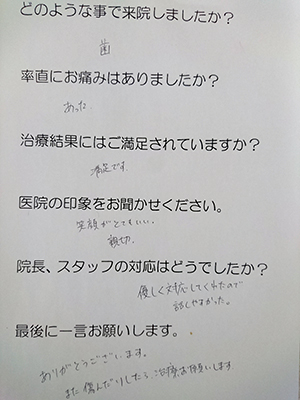 どのような事で来院しましたか？
歯
率直にお痛みはありましたか？
あった.
治療結果にはご満足されていますか？
満足です.
医院の印象をお聞かせください。
笑顔がとてもいい.
親切.
院長、スタッフの対応はどうでしたか？
優しく対応してくれたので
話しやすかった。
最後に一言お願いします。
ありがとうございます。
また傷んだりしたら、治療お願いします